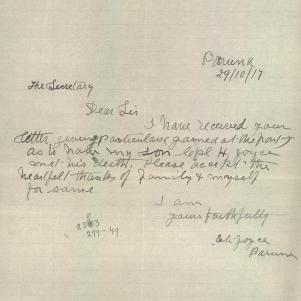 Paruna
29/10/17
The Secretary
Dear Sir
I have received your
letter giving particulars gained at the front
as to how my son Cpl H. Joyce
met his death. Please accept the
heartfelt thanks of family & myself
for same
I am
yours faithfully
Eli Joyce
Paruna